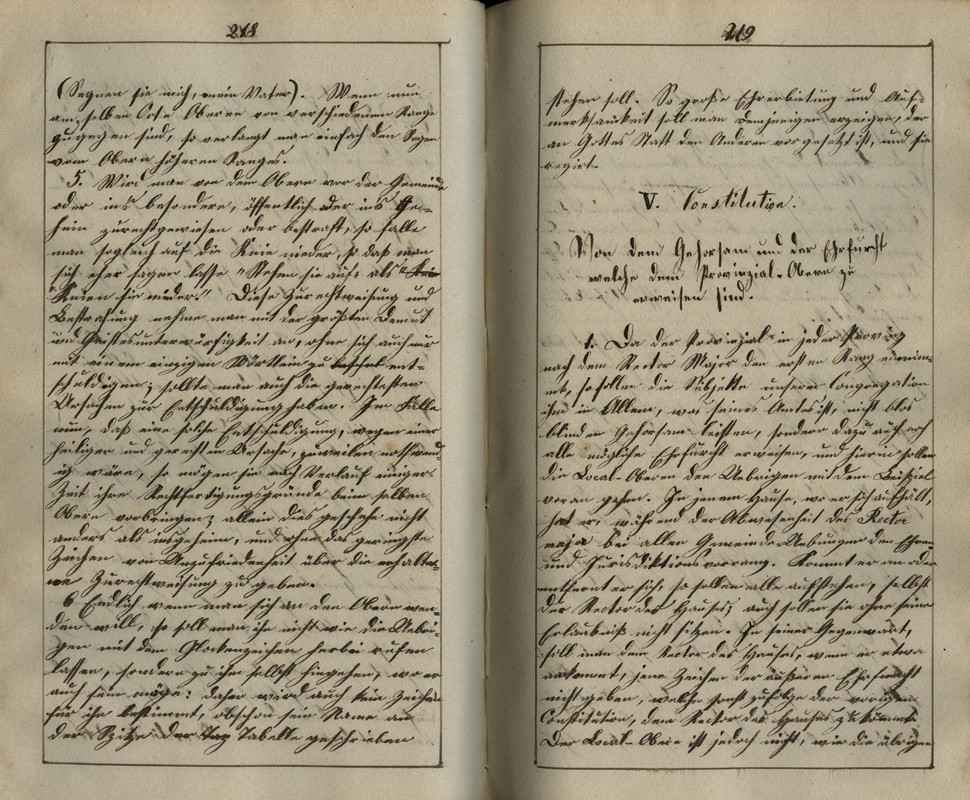 218
(Segnen sie mich, mein Vater). Wenn nun
an selben Orte Obern von verschiedenem Range
zugegen sind, so verlangt man einfach den Segen
vom Obern höheren Ranges.
5. Wird man von dem Obern vor der Gemeinde
oder ins besondere, öffentlich oder ins Ge-
heim zurechtgewiesen oder bestraft, so falle
man sogleich auf die Knie nieder, so daß man
sich eher sagen lasse "Stehen sie auf" als
"Knien sie nieder." Diese Zurechtweisung und
Bestrafung nehme man mit der größten Demut
und Geistesunterwürfigkeit an, ohne sich auch nur
mit einem einzigen Wörtlein zu ent-
schuldigen; sollte man auch die gerechtesten
Ursachen zur Entschuldigung haben. Im Falle
nun, daß eine solche Entschuldigung, wegen einer
heiliger und gerechten Ursache, zuweilen nothwend-
ig wäre, so mögen sie nach Verlauf einiger
Zeit ihre Rechtfertigungsgründe beim selben
Obern vorbringen; allein dies geschehe nicht
anders als insgeheim, und ohne das geringste
Zeichen von Unzufriedenheit über die erhalte-
ne Zurechtweisung zu geben.
6 Endlich wenn man sich an den Obern wen-
den will, so soll man ihn nicht wie die Uebri-
gen mit dem Glockenzeichen herbei rufen
lassen, sondern zu ihm selbst hingehen, wo er
auch sein möge; daher wird auch kein Zeichen
für ihn bestimmt, obschon sein Name an
der Spitze der Tabelle geschrieben
219
stehen soll. So große Ehrerbietung und Auf-
merksamkeit soll man demjenigen erzeigen, der
an Gottes Statt den Anderen vorgesetzt ist, und sie
regiert.
V. Constitution.
Von dem Gehorsam und der Ehrfurcht
welche dem Provinzial-Obern zu
erweisen sind.
1. Da der Provinzial in jeder Provinz
nach dem Rector Major den ersten Rang einnim-
mt, so sollen die Subjekte unserer Congregation
ihm in Allem, was seines Amtes ist, nicht blos
blinden Gehorsam leisten, sondern dazu auch noch
alle mögliche Ehrfurcht erweisen, und hierin sollen
die Local-Obern den Uebrigen mit dem Beispiel
voran gehen. In jenem Hause, wo er sich aufhält,
hat er, während der Abwesenheit des Rector
major bei allen Gemeinde-Uebungen den Ehren-
und Jurisdiktionsvorrang. Kommt er an oder
entfernt er sich, so sollen alle aufstehen, selbst
der Rector des Hauses; auch sollen sie ohne seine
Erlaubniß nicht sitzen. In seiner Gegenwart,
soll man dem Rector des Hauses, wenn er etwa
ankommt, jene Zeichen der äußeren Ehrfurcht
nicht geben, welche sonst zufolge der vorigen
Constitution, dem Rector des Hauses zukommt.
Der Local-Obere ist jedoch nicht, wie die übrigen